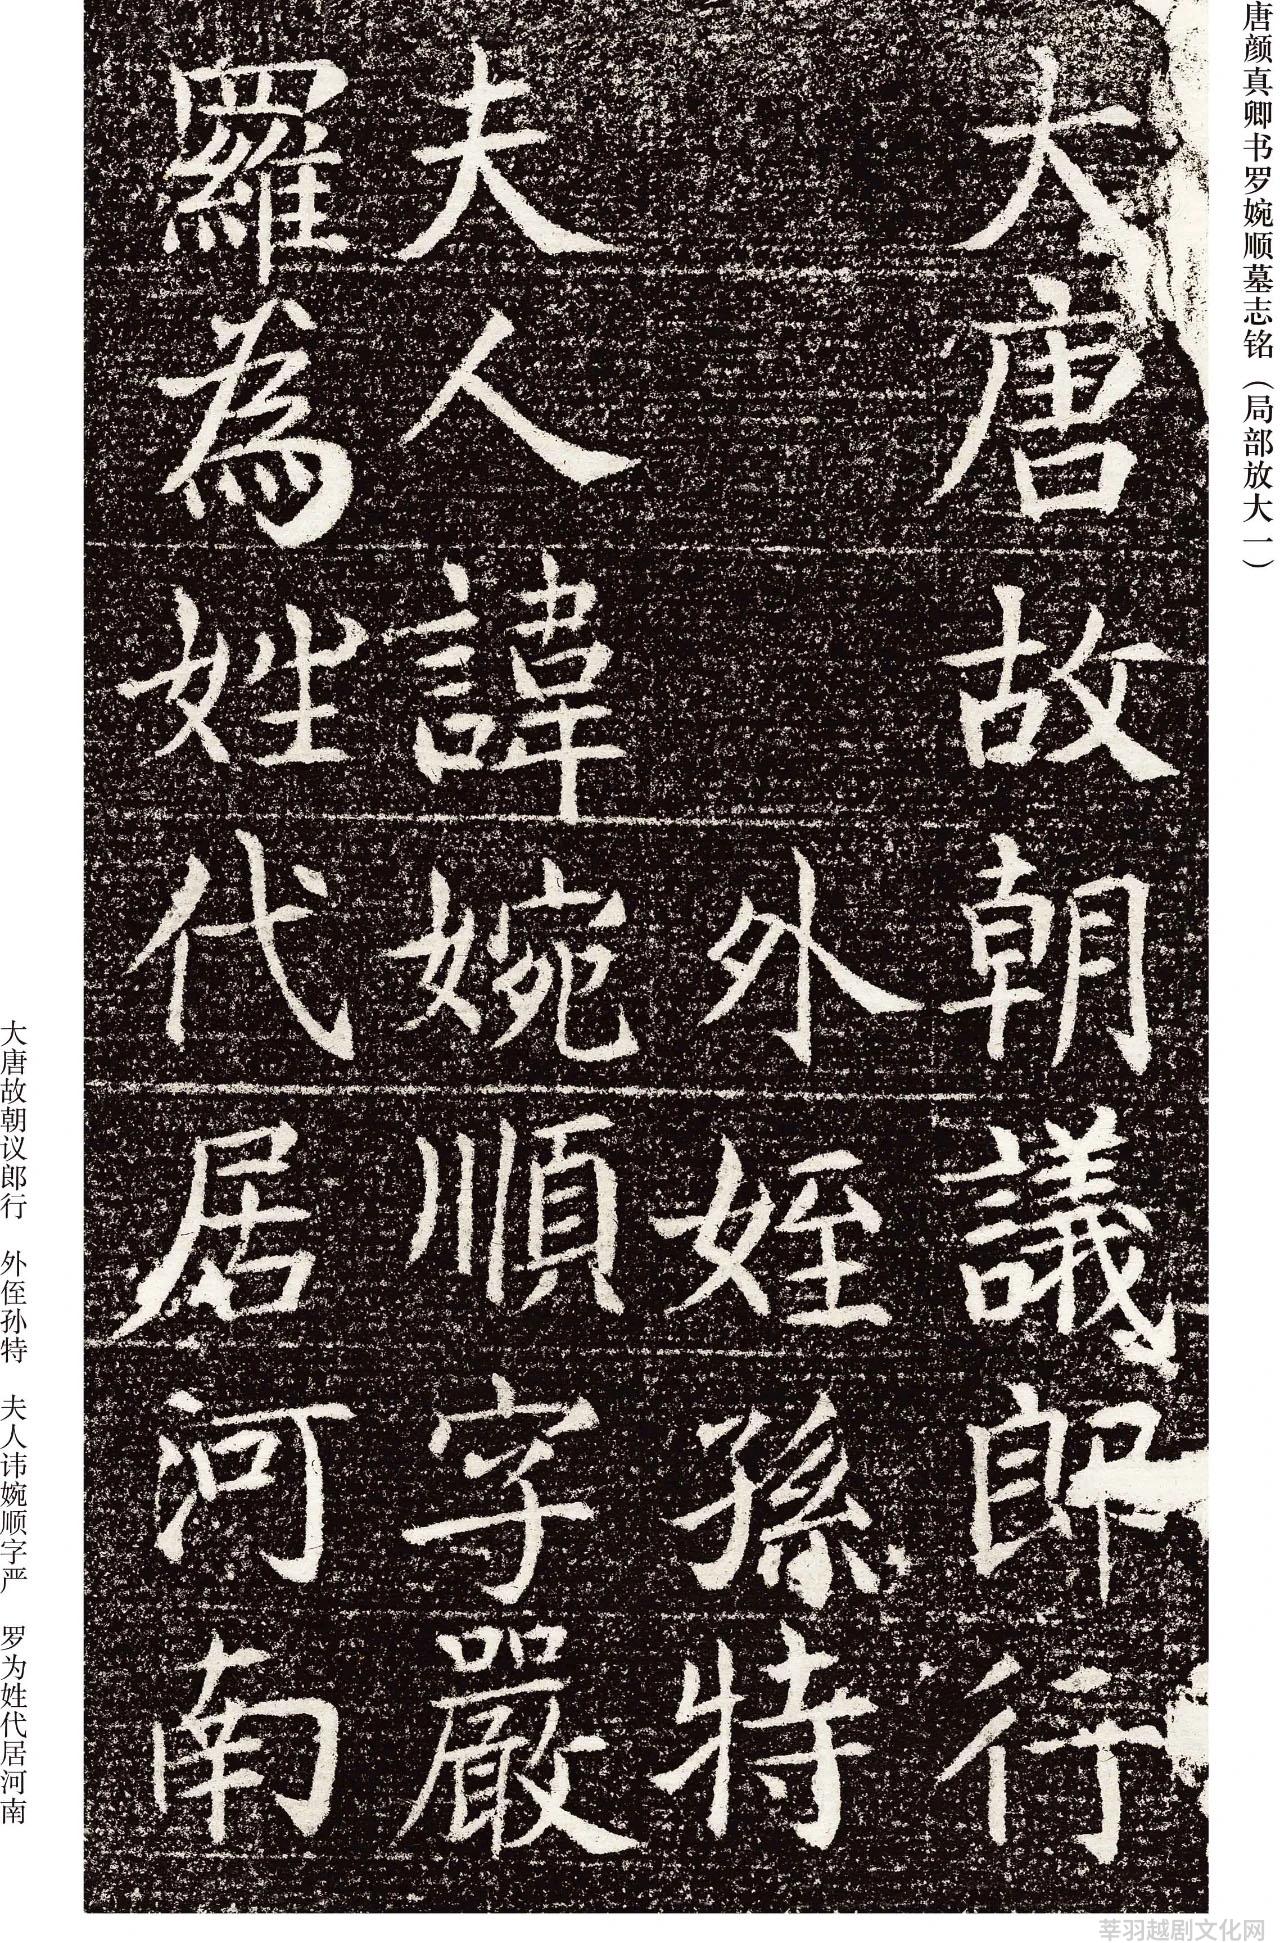 唐颜真卿书罗婉顺墓志铭（局部放大一）
大唐故朝議郎行
外姪孫特
夫人諱婉順字嚴
羅為姓代居河南
大唐故朝议郎行　外侄孙特　夫人讳婉顺字严　罗为姓代居河南
莘羽越剧文化网